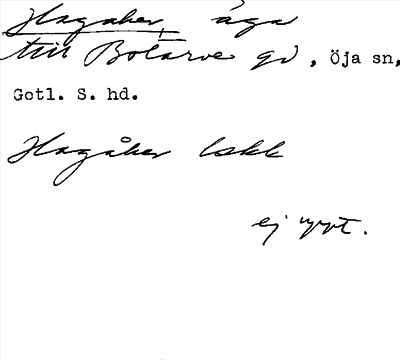 Hagaker, äga
till Botarve gd, Öja sn,
Gotl. S. hd.
Hagåker
ej uppt.